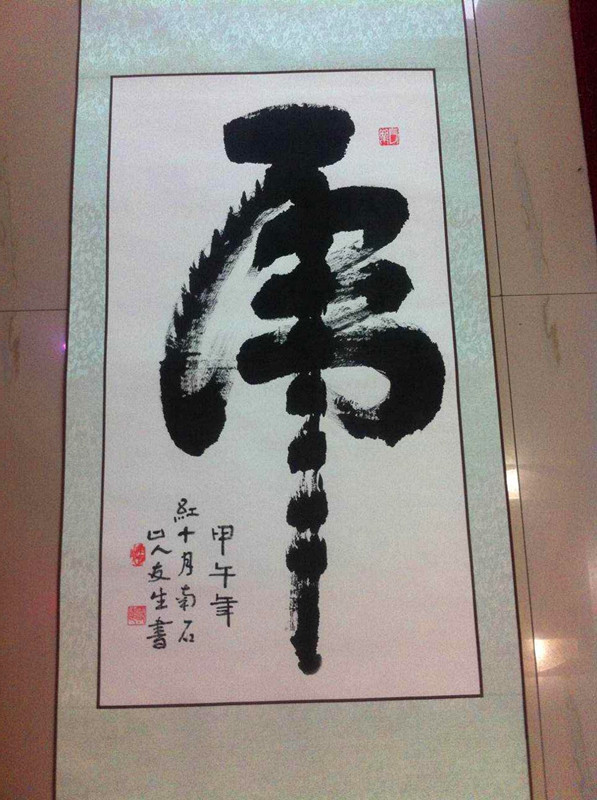 虎
甲午年
紅十月南石
山人友生書